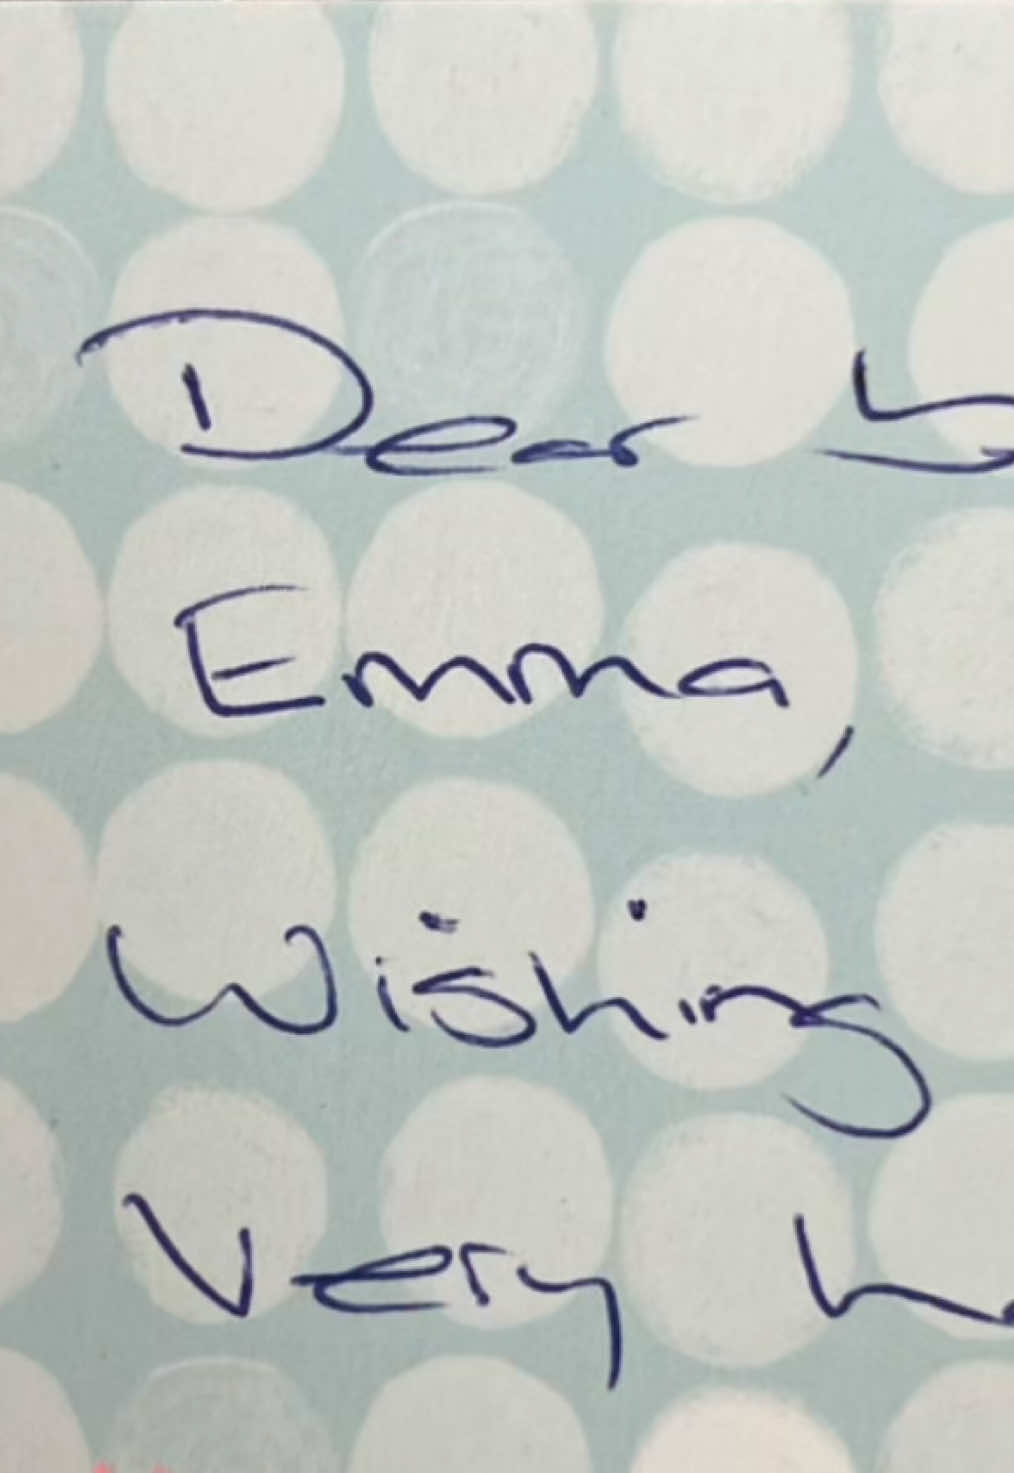 Dear
Emma,
Wishing
Very